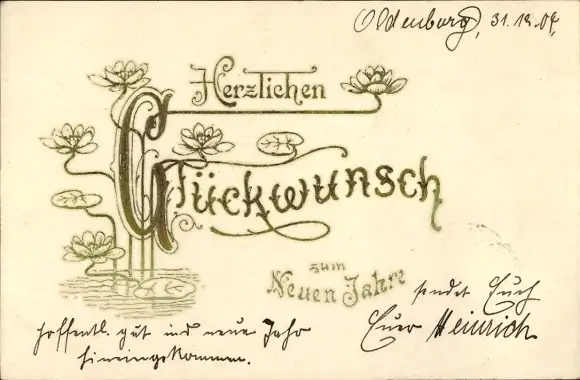 Oldenburg, 31.12.04.
Herzlichen
Glückwunsch
zum
Neuen Jahre
sendet Euch
Euer Heinrich
hoffentl. gut ins neue Jahr
hineingekommen.